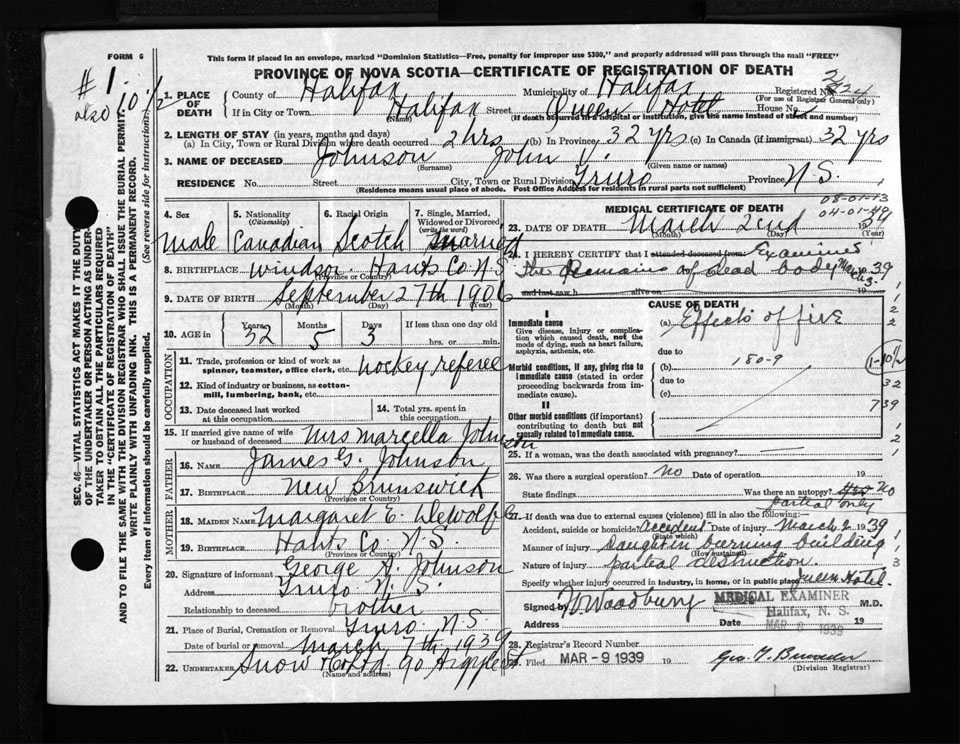 FORM 6
This form if placed in an envelope, marked "Dominion Statistics—Free, penalty for improper use $300," and properly addressed will pass through the mail "FREE"
PROVINCE OF NOVA SCOTIA—CERTIFICATE OF REGISTRATION OF DEATH
#1 also 10 1/2
1. PLACE OF DEATH County of Halifax Municipality of Halifax Registered No.
(For use of Registrar General only)
If in City or Town Halifax Street Queen Hotel House No.
(Name) (If death occurred in hospital or institution, give name instead of street and number)
2. LENGTH OF STAY (in years, months and days)
(a) In City, Town or Rural Division where death occurred 2 hrs (b) In Province 32 yrs (c) In Canada (if immigrant) 32 yrs
3. NAME OF DECEASED Johnson John
(Surname) (Given name or names)
RESIDENCE No. Street City, Town or Rural Division Truro Province N.S.
(Residence means usual place of abode. Post Office Address for residents in rural parts not sufficient)
08-01-13
04-01-49
4. Sex 5. Nationality (Citizenship) 6. Racial Origin 7. Single, Married, Widowed or Divorced (write the word)
Male Canadian Scotch Married
8. BIRTHPLACE Windsor Hants Co N.S.
9. DATE OF BIRTH September 27th 1906
(Month) (Day) (Year)
10. AGE in Years Months Days If less than one day old
32 5 3 hrs. or min.
OCCUPATION
11. Trade, profession or kind of work as spinner, teamster, office clerk, etc. hockey referee
12. Kind of industry or business, as cotton-mill, lumbering, bank, etc.
13. Date deceased last worked at this occupation
14. Total yrs. spent in this occupation
15. If married give name of wife or husband of deceased Mrs Marcella Johnson
FATHER
16. NAME James G. Johnson
17. BIRTHPLACE New Brunswick
(Province or Country)
MOTHER
18. MAIDEN NAME Margaret E. DeWolfe
19. BIRTHPLACE Hants Co N.S.
(Province or Country)
20. Signature of informant George A. Johnson
Address Truro N.S.
Relationship to deceased brother
21. Place of Burial, Cremation or Removal Truro N.S.
Date of burial or removal March 7th 1939
22. UNDERTAKER Snow & Co Ltd 90 Argyle St
(Name and address)
MEDICAL CERTIFICATE OF DEATH
23. DATE OF DEATH March 2nd 19
(Month) (Day) (Year)
24. I HEREBY CERTIFY that I attended deceased from: Examined
the Remains of dead body March 3 39
and last saw h alive on 19
CAUSE OF DEATH
I
Immediate cause
Give disease, injury or complication which caused death, not the mode of dying, such as heart failure, asphyxia, asthenia, etc.
(a) Effects of fire
due to
(b) 180-9
due to
(c)
Morbid conditions, if any, giving rise to immediate cause (stated in order proceeding backwards from immediate cause).
II
Other morbid conditions (if important) contributing to death but not causally related to immediate cause.
1-10 1/2
32
739
25. If a woman, was the death associated with pregnancy?
26. Was there a surgical operation? no Date of operation 19
State findings Was there an autopsy? Yes no
partial only
27. If death was due to external causes (violence) fill in also the following:
Accident, suicide or homicide? Accident Date of injury March 2 1939
(State which)
Manner of injury Caught in burning building
(How sustained)
Nature of injury partial destruction.
Specify whether injury occurred in industry, in home, or in public place Queen Hotel
Signed by Woodbury MEDICAL EXAMINER M.D.
Address Date Halifax, N. S. MAR 8 1939 19
28. Registrar's Record Number
29. Filed MAR -9 1939 19
(Division Registrar)
SEC. 46—VITAL STATISTICS ACT MAKES IT THE DUTY OF THE UNDERTAKER OR PERSON ACTING AS UNDERTAKER TO OBTAIN ALL THE PARTICULARS REQUIRED IN THE "CERTIFICATE OF REGISTRATION OF DEATH"
AND TO FILE THE SAME WITH THE DIVISION REGISTRAR WHO SHALL ISSUE THE BURIAL PERMIT.
WRITE PLAINLY WITH UNFADING INK. THIS IS A PERMANENT RECORD.
Every item of information should be carefully supplied. (See reverse side for instructions)